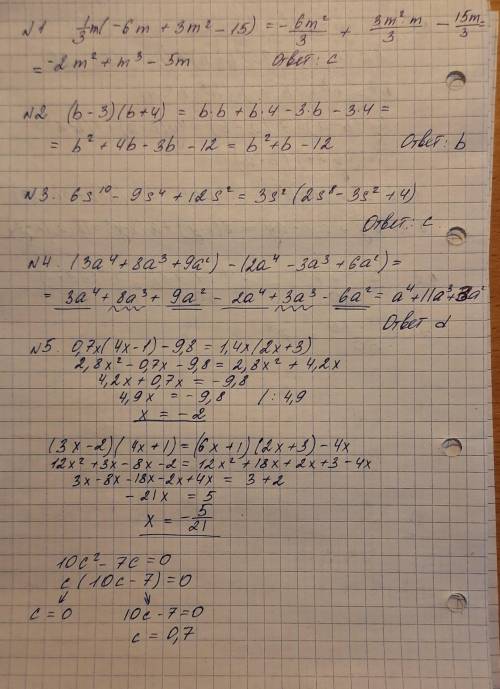 N1 1/3 m(-6m + 3m² - 15) = - 6m²/3 + 3m²m/3 - 15m/3 =
= -2m² + m³ - 5m Ответ: c
N2 (b-3)(b+4) = b·b + b·4 - 3·b - 3·4 =
= b² + 4b - 3b - 12 = b² + b - 12 Ответ: b
N3. 6s¹⁰ - 9s⁴ + 12s² = 3s² (2s⁸ - 3s² + 4)
Ответ: c.
N4. (3a⁴ + 8a³ + 9a²) - (2a⁴ - 3a³ + 6a²) =
= 3a⁴ + 8a³ + 9a² - 2a⁴ + 3a³ - 6a² = a⁴ + 11a³ + 3a²
Ответ d
N5. 0,7x(4x-1) - 9,8 = 1,4x(2x+3)
2,8x² - 0,7x - 9,8 = 2,8x² + 4,2x
4,2x + 0,7x = -9,8
4,9x = -9,8 /: 4,9
x = -2
(3x-2)(4x+1) = (6x+1)(2x+3) - 4x
12x² + 3x - 8x - 2 = 12x² + 18x + 2x + 3 - 4x
3x - 8x - 18x - 2x + 4x = 3 + 2
-21x = 5
x = - 5/21
10c² - 7c = 0
c(10c - 7) = 0
c = 0 10c - 7 = 0
c = 0,7